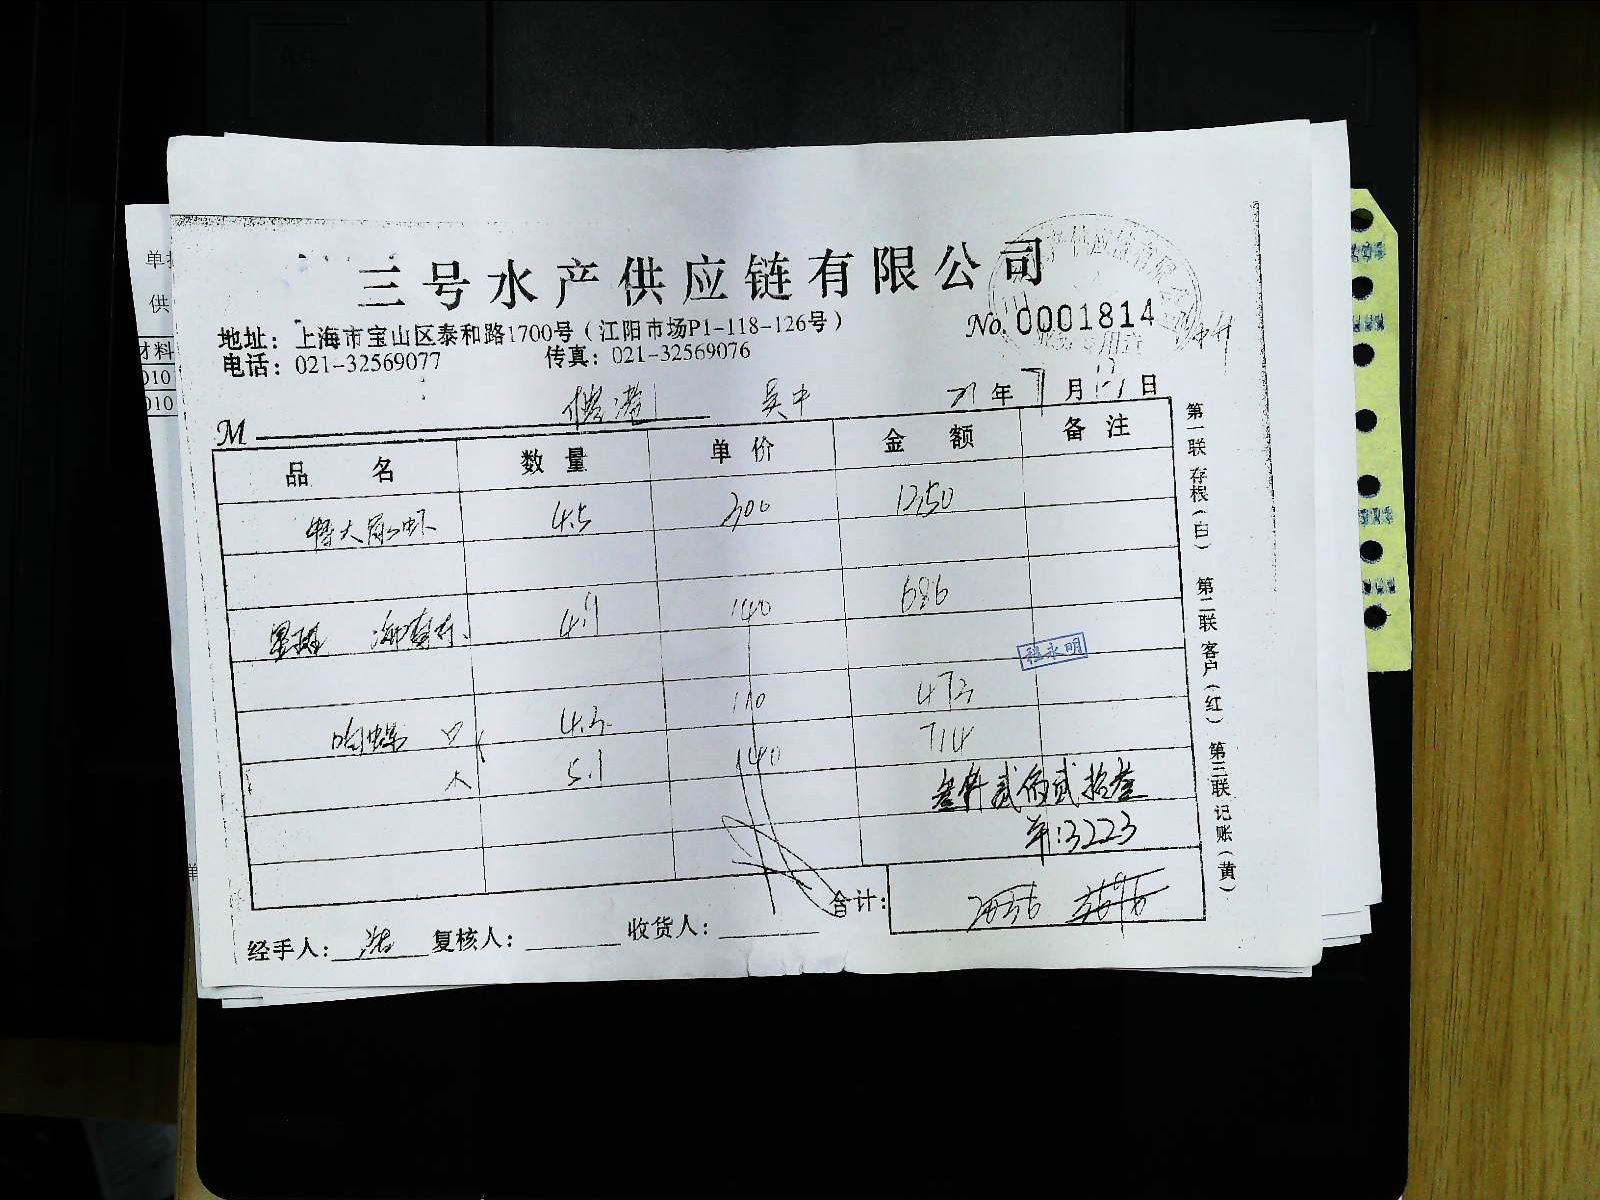 三号水产供应链有限公司
No. 0001814
地址：上海市宝山区泰和路1700号（江阳市场P1-118-126号）
电话：021-32569077 传真：021-32569076
吴中 21年7月 日
M
品名 数量 单价 金额 备注
特大 虾 4.5 300 1350
4.9 140 686
程永明
哈 4.3 110 473
大 5.1 140 714
叁仟贰佰贰拾叁
3223
合计：
经手人： 复核人： 收货人：
第一联 存根（白） 第二联 客户（红） 第三联 记账（黄）
单
供
材料
010
010
单